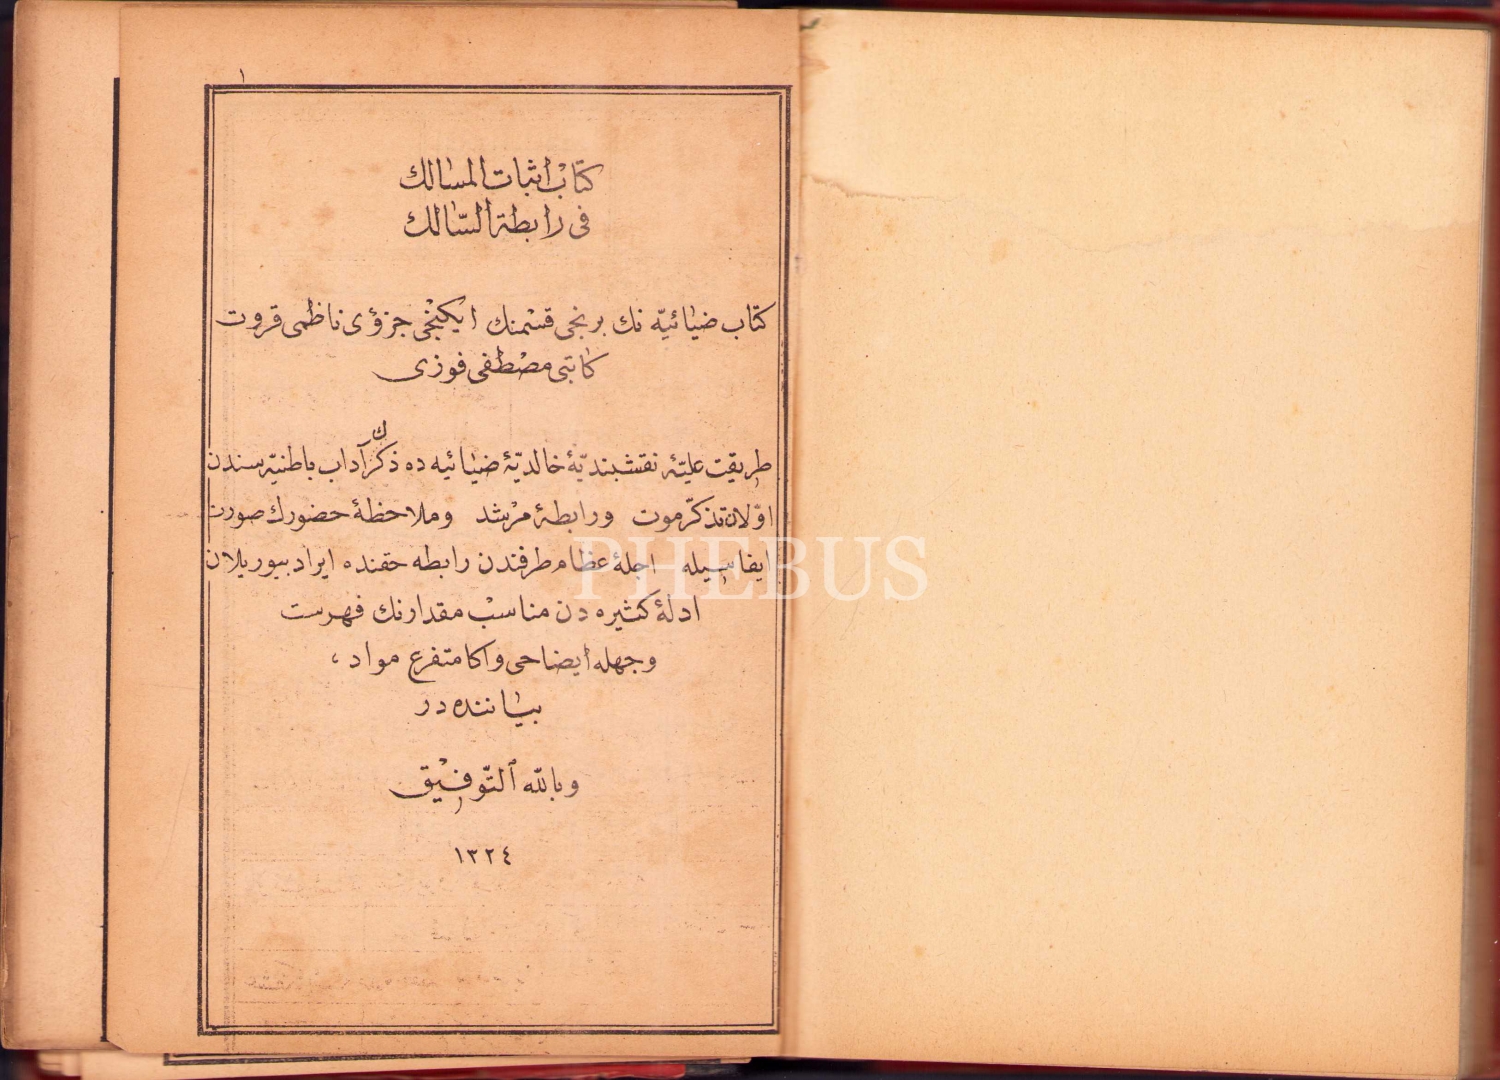 ١
كتاب اثبات المسالك
فى رابطة السّالك
كتاب ضيائيّه نك برنجى قسمنك ايكنجى جزؤى ناظمى قروت
كاتبى مصطفى فوزى
طريقت عليّۀ نقشبنديّۀ خالديّۀ ضيائيه ده ذكرك آداب باطنيّه سندن
اوّلان تذكّر موت ورابطۀ مرشد وملاحظۀ حضورك صورت
ايفاسيله اجلۀ عظام طرفندن رابطه حقنده ايراد بيوريلان
ادلۀ كثيره دن مناسب مقدارنك فهرست
وجهله ايضاحى واكا متفرع مواد ،
بياننده در
وبالله التّوفيق
١٣٢٤
PHEBUS